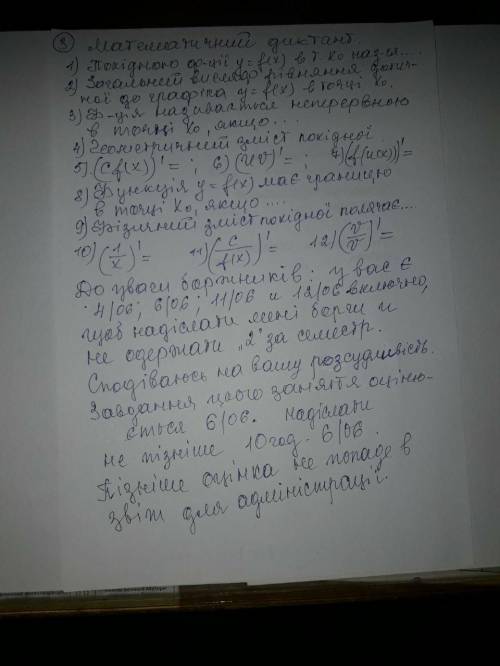 ③ Математичний диктант.
1) Похідною ф-ції y = f(x) в т. x₀ наз-ся....
2) Загальний вигляд рівняння дотич-
ної до графіка y = f(x) в точці x₀.
3) Ф-ція називається неперервною
в точці x₀, якщо...
4) Геометричний зміст похідної
5) (Cf(x))' = ; 6) (UV)' = ; 7) (f(u(x)))' =
8) Функція y = f(x) має границю
в точці x₀, якщо....
9) Фізичний зміст похідної полягає....
10) (1/x)' = 11) (C/f(x))' = 12) (V/V)' =
До уваги боржників: у вас є
4/06; 6/06; 11/06 и 12/06 включно,
щоб надіслати мені борги и
не одержати „2" за семестр.
Сподіваюсь на вашу розсудливість.
Завдання цього заняття оціню-
ється 6/06. Надіслати
не пізніше 10 год. 6/06
Пізніше оцінка не попаде в
звіт для адміністрації.